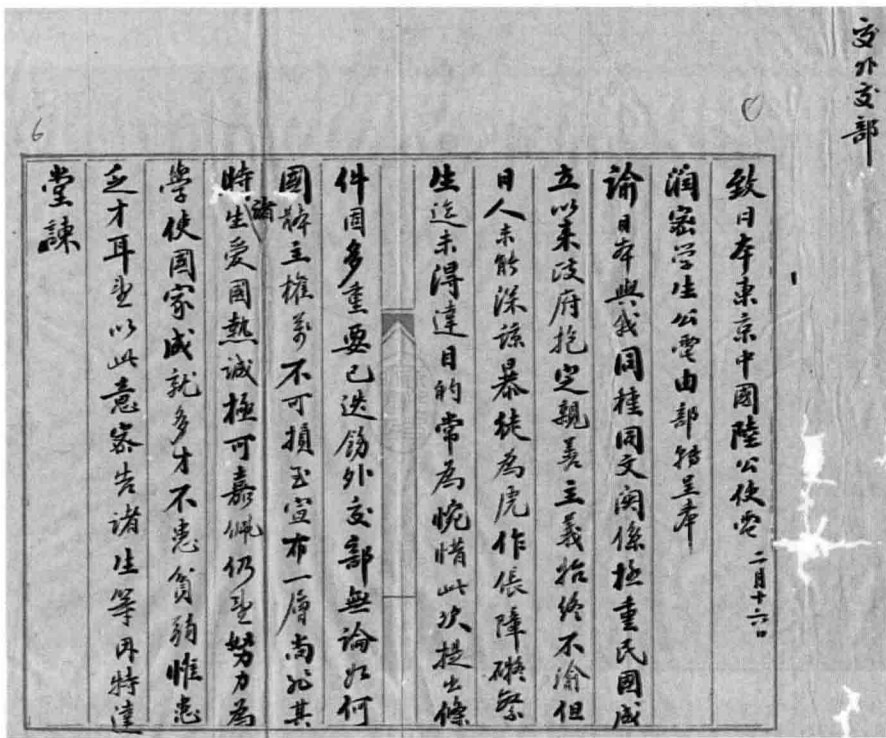 交外交部
致日本東京中國陸公使電 二月十六日
潤密学生公電由部轉呈奉
諭日本與我同種同文関係極重民國成
立以来政府抱定親善主義始終不渝但
日人未能深諒暴徒為虎作倀障礙繁
生迄未得達目的常為惋惜此次提出條
件固多重要已迭飭外交部無論如何
國體主權萬不可損至宣布一層尚非其
時諸生愛國熱誠極可嘉佩仍望努力為
學使國家成就多才不患貧弱惟患
乏才耳望以此意密告諸生等因特達
堂諫
6